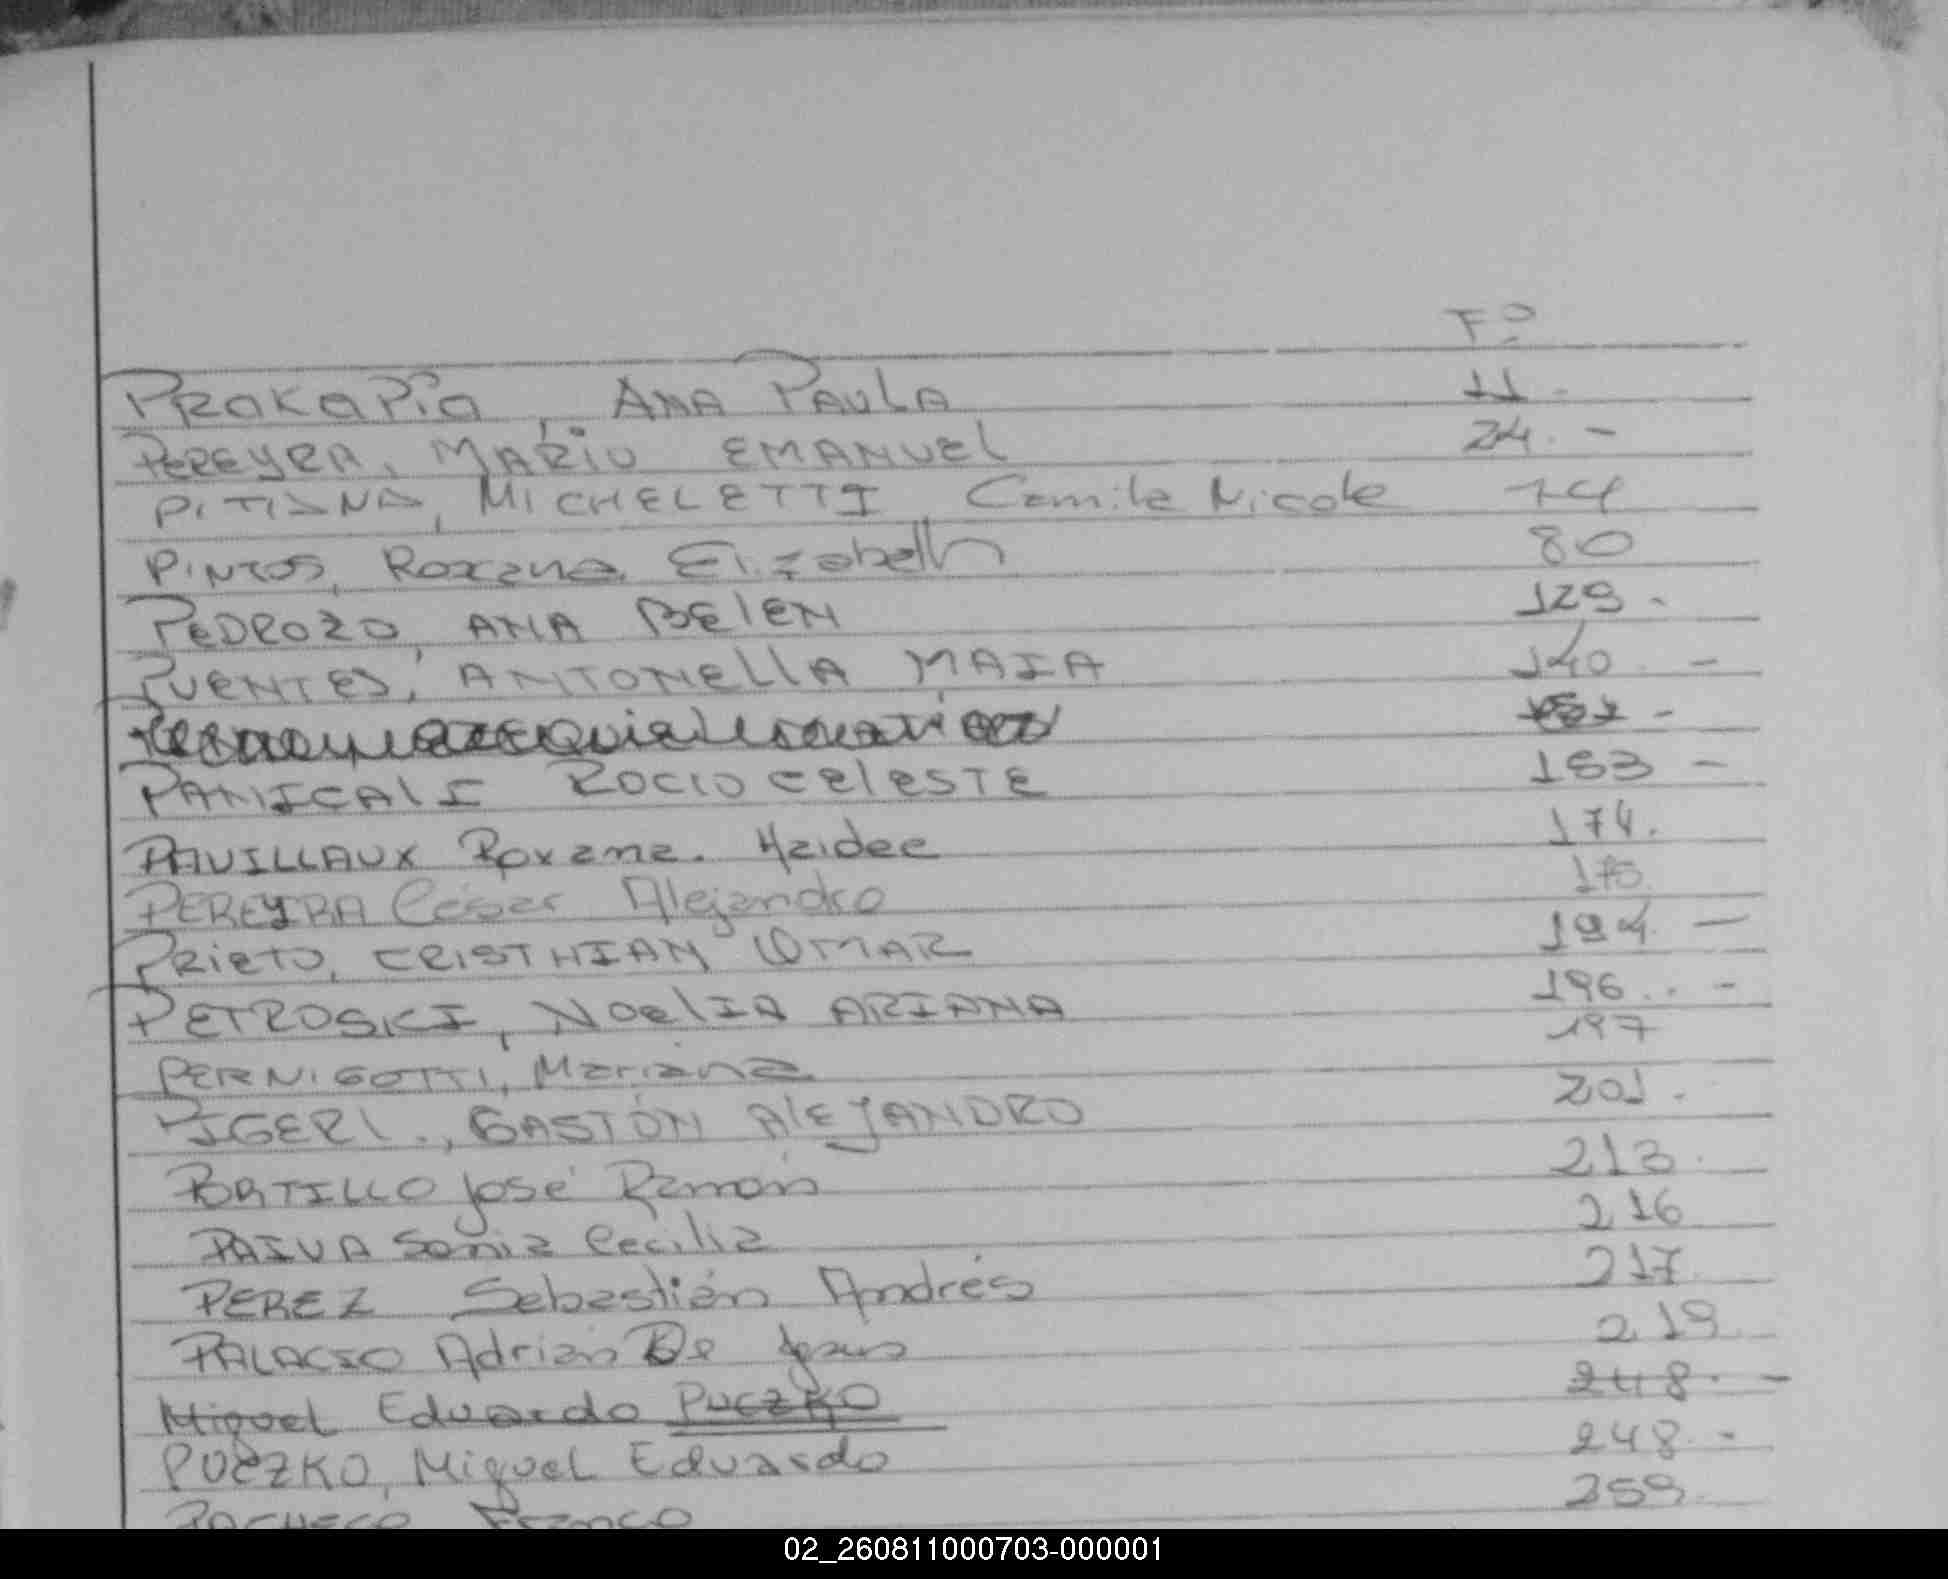 Fº
PROKOPIO, ANA PAULA 11.
PEREYRA, MARIO EMANUEL 24. -
PITIANA, MICHELETTI, Camila Nicole 74
PINTOS, Roxana Elizabeth 80
PEDROZO, ANA BELEN 129 -
PUENTES, ANTONELLA MAIA 140 -
PANICALI ROCIO CELESTE 153 -
PAVILLAUX Roxana. Haidee 174.
PEREYRA César Alejandro 175.
PRIETO, CRISTHIAN OMAR 194 -
PETROSKI, NOELIA ARIANA 196.. -
PERNIGOTTI, Mariana 197
PIGERL., GASTÓN ALEJANDRO 201.
PORTILLO José Ramón 213.
PAIVA Sonia Cecilia 216
PEREZ Sebastián Andrés 217
PALACIO Adrián De Jesus 219
Miguel Eduardo PUCZKO 248. -
PUCZKO, Miguel Eduardo 248. -
PACHECO Franco 259
02_260811000703-000001